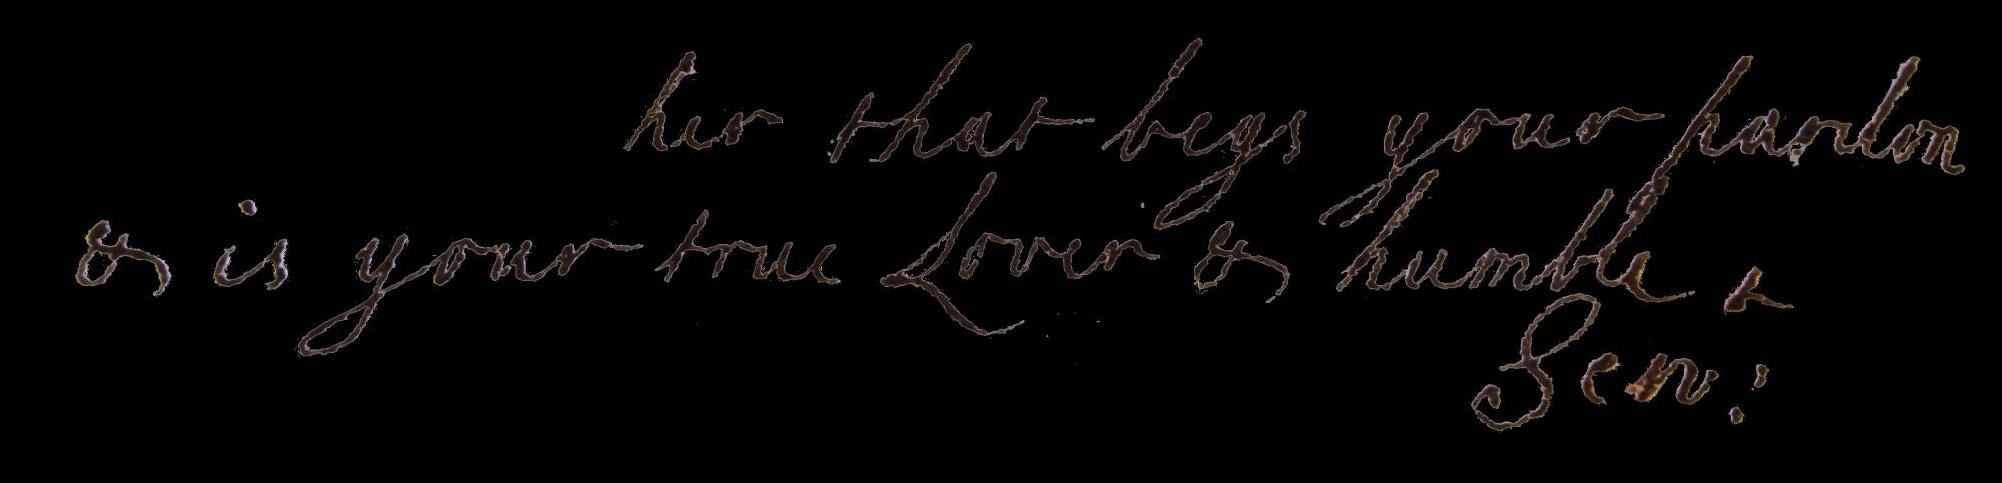 her that begs your pardon
& is your true Lover & humble
Ser: